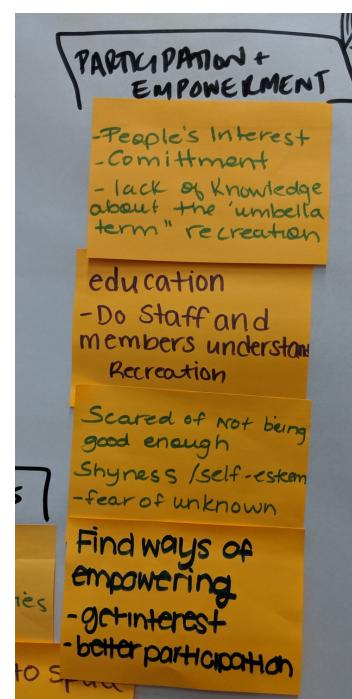 PARTICIPATION +
EMPOWERMENT
-People's Interest
-Comittment
-lack of Knowledge
about the "umbella
term" recreation
education
-Do Staff and
members understand
Recreation
Scared of Not being
good enough
Shyness /self-esteem
-fear of unknown
Find ways of
empowering
-get interest
-better participation
to